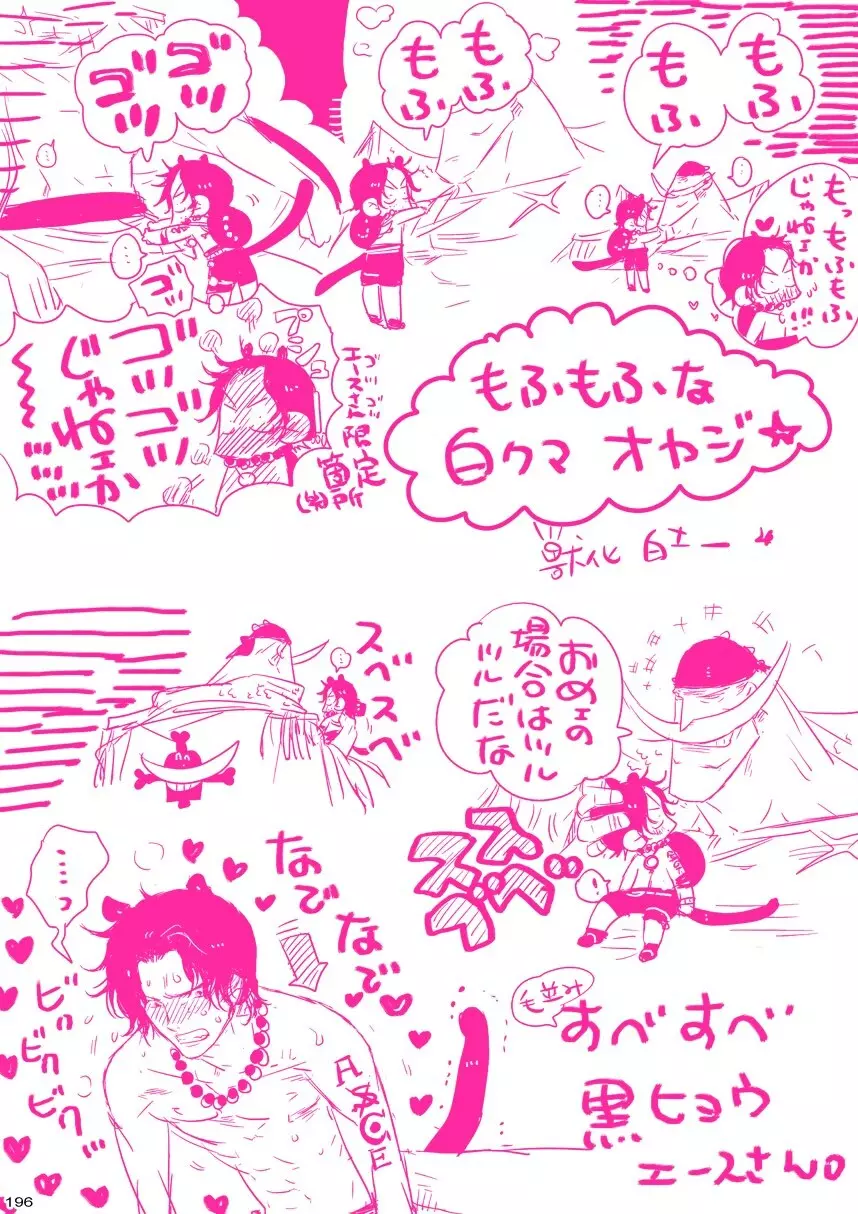 もふ
もふ
もふ
もふ
ゴツ
ゴツ
…
…
…
…
もっもふもふ
じゃねェか
!!!
ゴツ
ゴツゴツ
じゃねェか
ゴツゴツ
エースさん限定
箇所
(笑)
もふもふな
白クマ オヤジ☆
獣化 白土一
スベスベ
…
おめェの
場合はツル
ツルだな
スベ
スベ
!
……っ
なでなで
ビクビクビクッ
ASCE
毛並み
すべすべ
黒ヒョウ
エースさん。
196